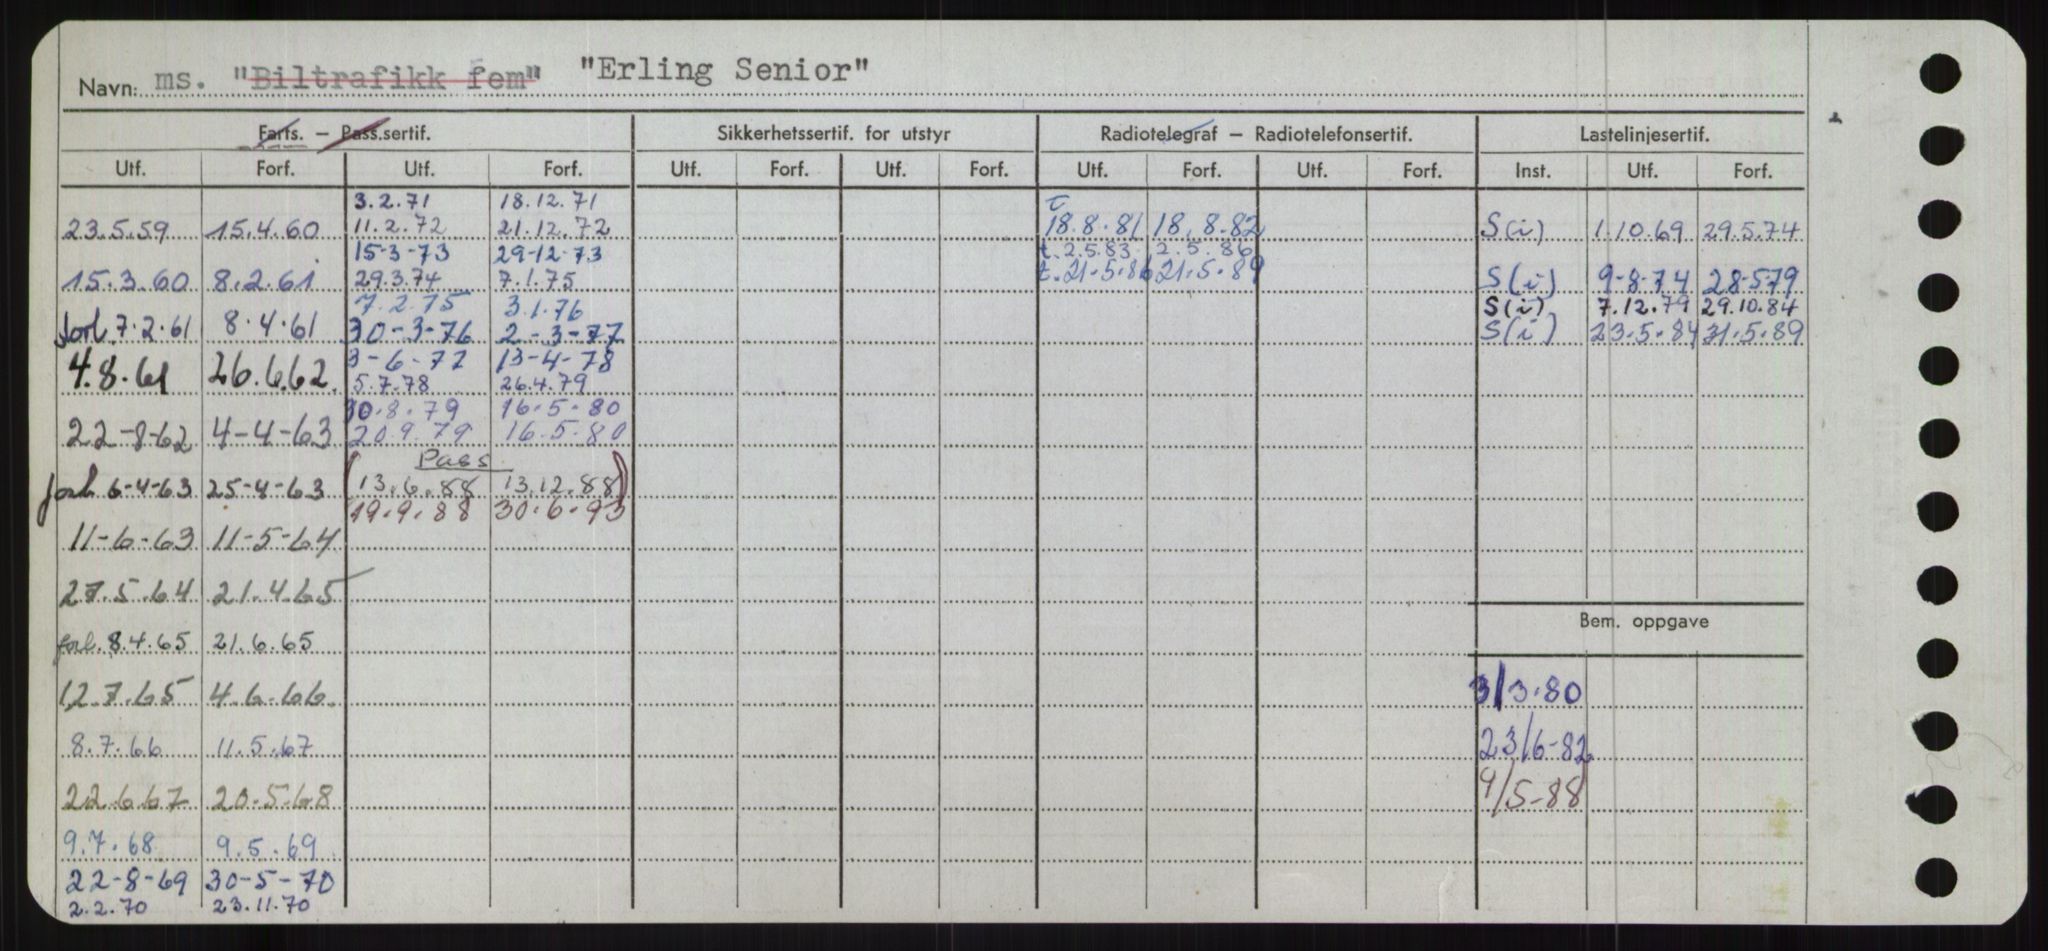 Navn: ms. "Biltrafikk fem" "Erling Senior"
Farts. – Pass.sertif. Sikkerhetssertif. for utstyr Radiotelegraf – Radiotelefonsertif. Lastelinjesertif.
Utf. Forf. Utf. Forf. Utf. Forf. Utf. Forf. Utf. Forf. Utf. Forf. Inst. Utf. Forf.
3.2.71 18.12.71 t
23.5.59 15.4.60 11.2.72 21.12.72 18.8.81 18.8.82 S(i) 1.10.69 29.5.74
15-3-73 29-12-73 t.2.5.83 2.5.86
15.3.60 8.2.61 29.3.74 7.1.75 t.21.5.86 21.5.89 S(i) 9-8-74 28-5-79
7.2.75 3.1.76 S(i) 7.12.79 29.10.84
forl. 7.2.61 8.4.61 30-3-76 2-3-77 S(i) 23.5.84 31.5.89
3-6-77 13-4-78
4.8.61 26.6.62. 5.7.78 26.4.79
30.8.79 16.5.80
22-8-62 4-4-63 20.9.79 16.5.80
Pass
forl. 6-4-63 25-4-63 (13.6.88 13.12.88)
19.9.88 30.6.93
11-6-63 11-5-64
27.5.64 21.4.65
Bem. oppgave
forl. 8.4.65 21.6.65
12.7.65 4.6.66. 3/3.80
8.7.66 11.5.67 23/6-82
22.6.67 20.5.68 9/5-88
9.7.68 9.5.69
22-8-69 30-5-70
2.2.70 23.11.70